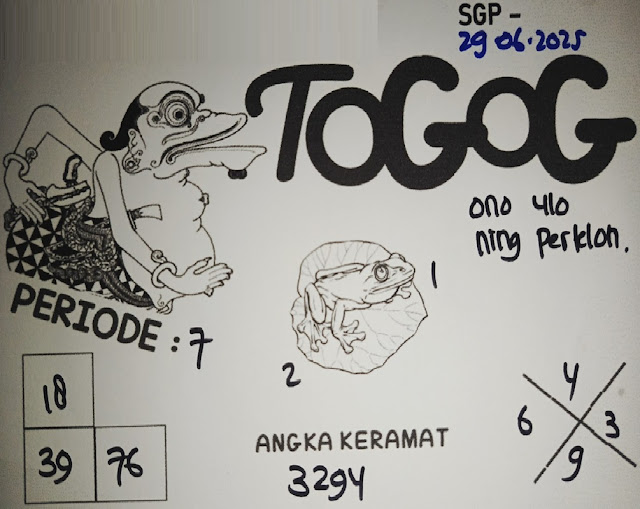 SGP -
29·06·2025
TOGOG
ono ulo
ning perklon.
PERIODE : 7
1
2
18
39 76
ANGKA KERAMAT
3294
4
6 3
9